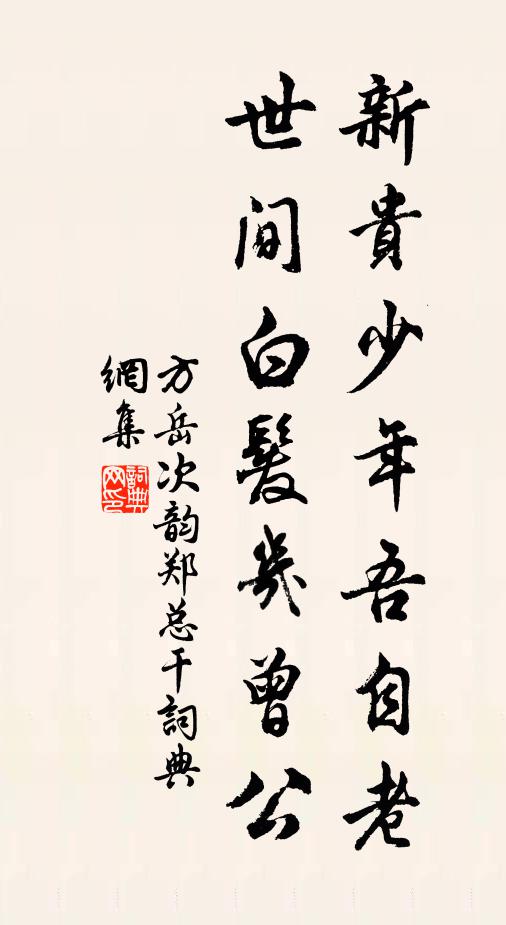 新貴少年吾自老
世间白髮幾曾公
方岳次韵郑总干詞典
網集
詞典
网印